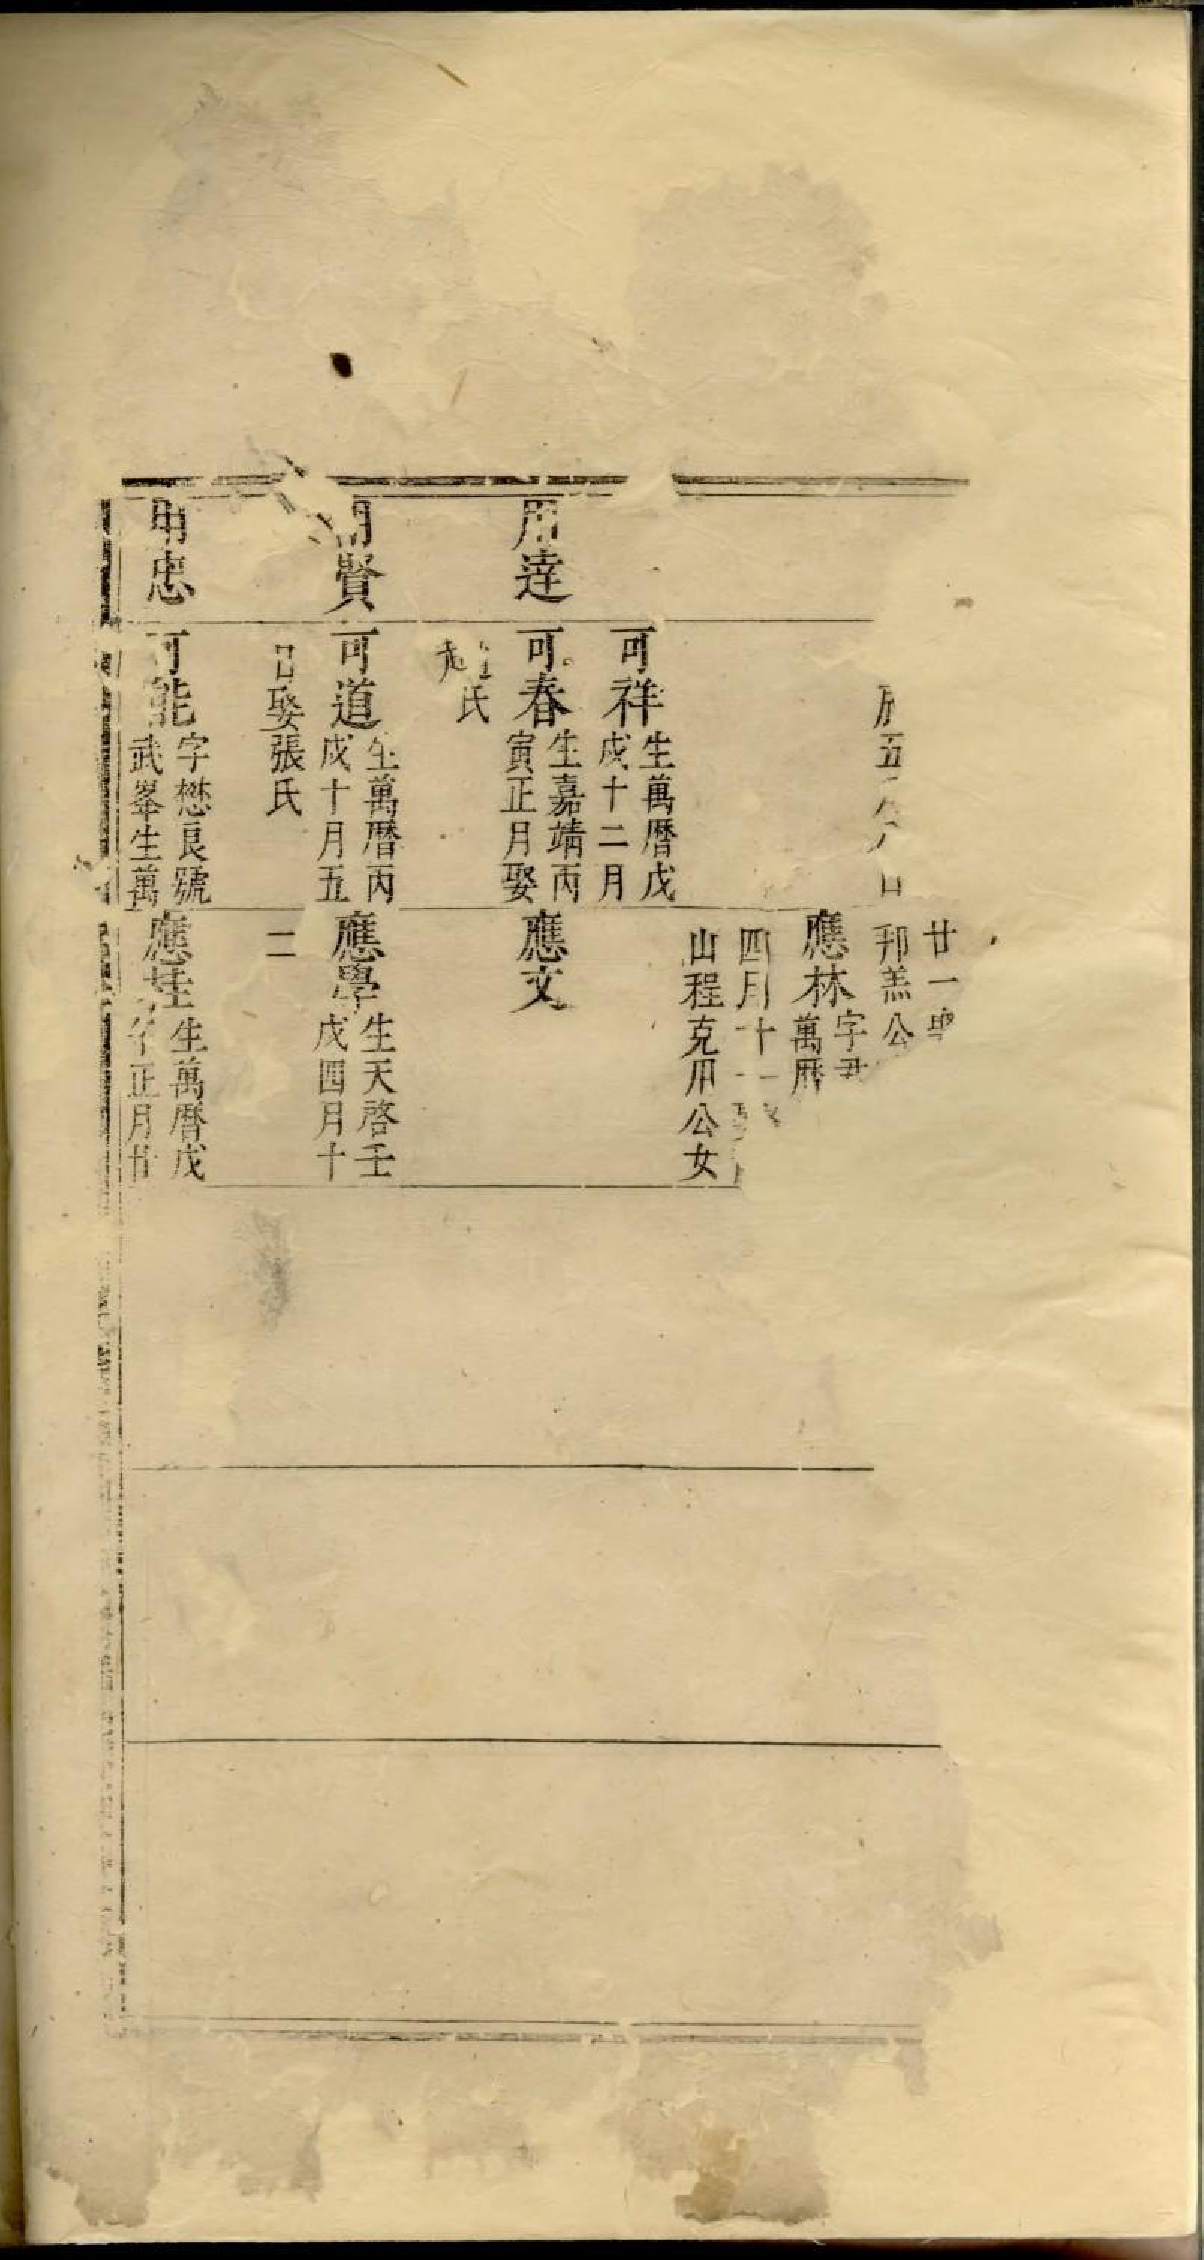 五
廿一
邦羔公
應林
字
萬曆
四月十一
山程克用公女
可祥
生萬曆戊
戌十二月
用達
可春
生嘉靖丙
寅正月娶
趙氏
應文
用賢
可道
生萬曆丙
戌十月五
日娶張氏
應學
生天啓壬
戌四月十
二
用忠
可能
字懋良號
武峯生萬
應桂
生萬曆戊
午正月廿